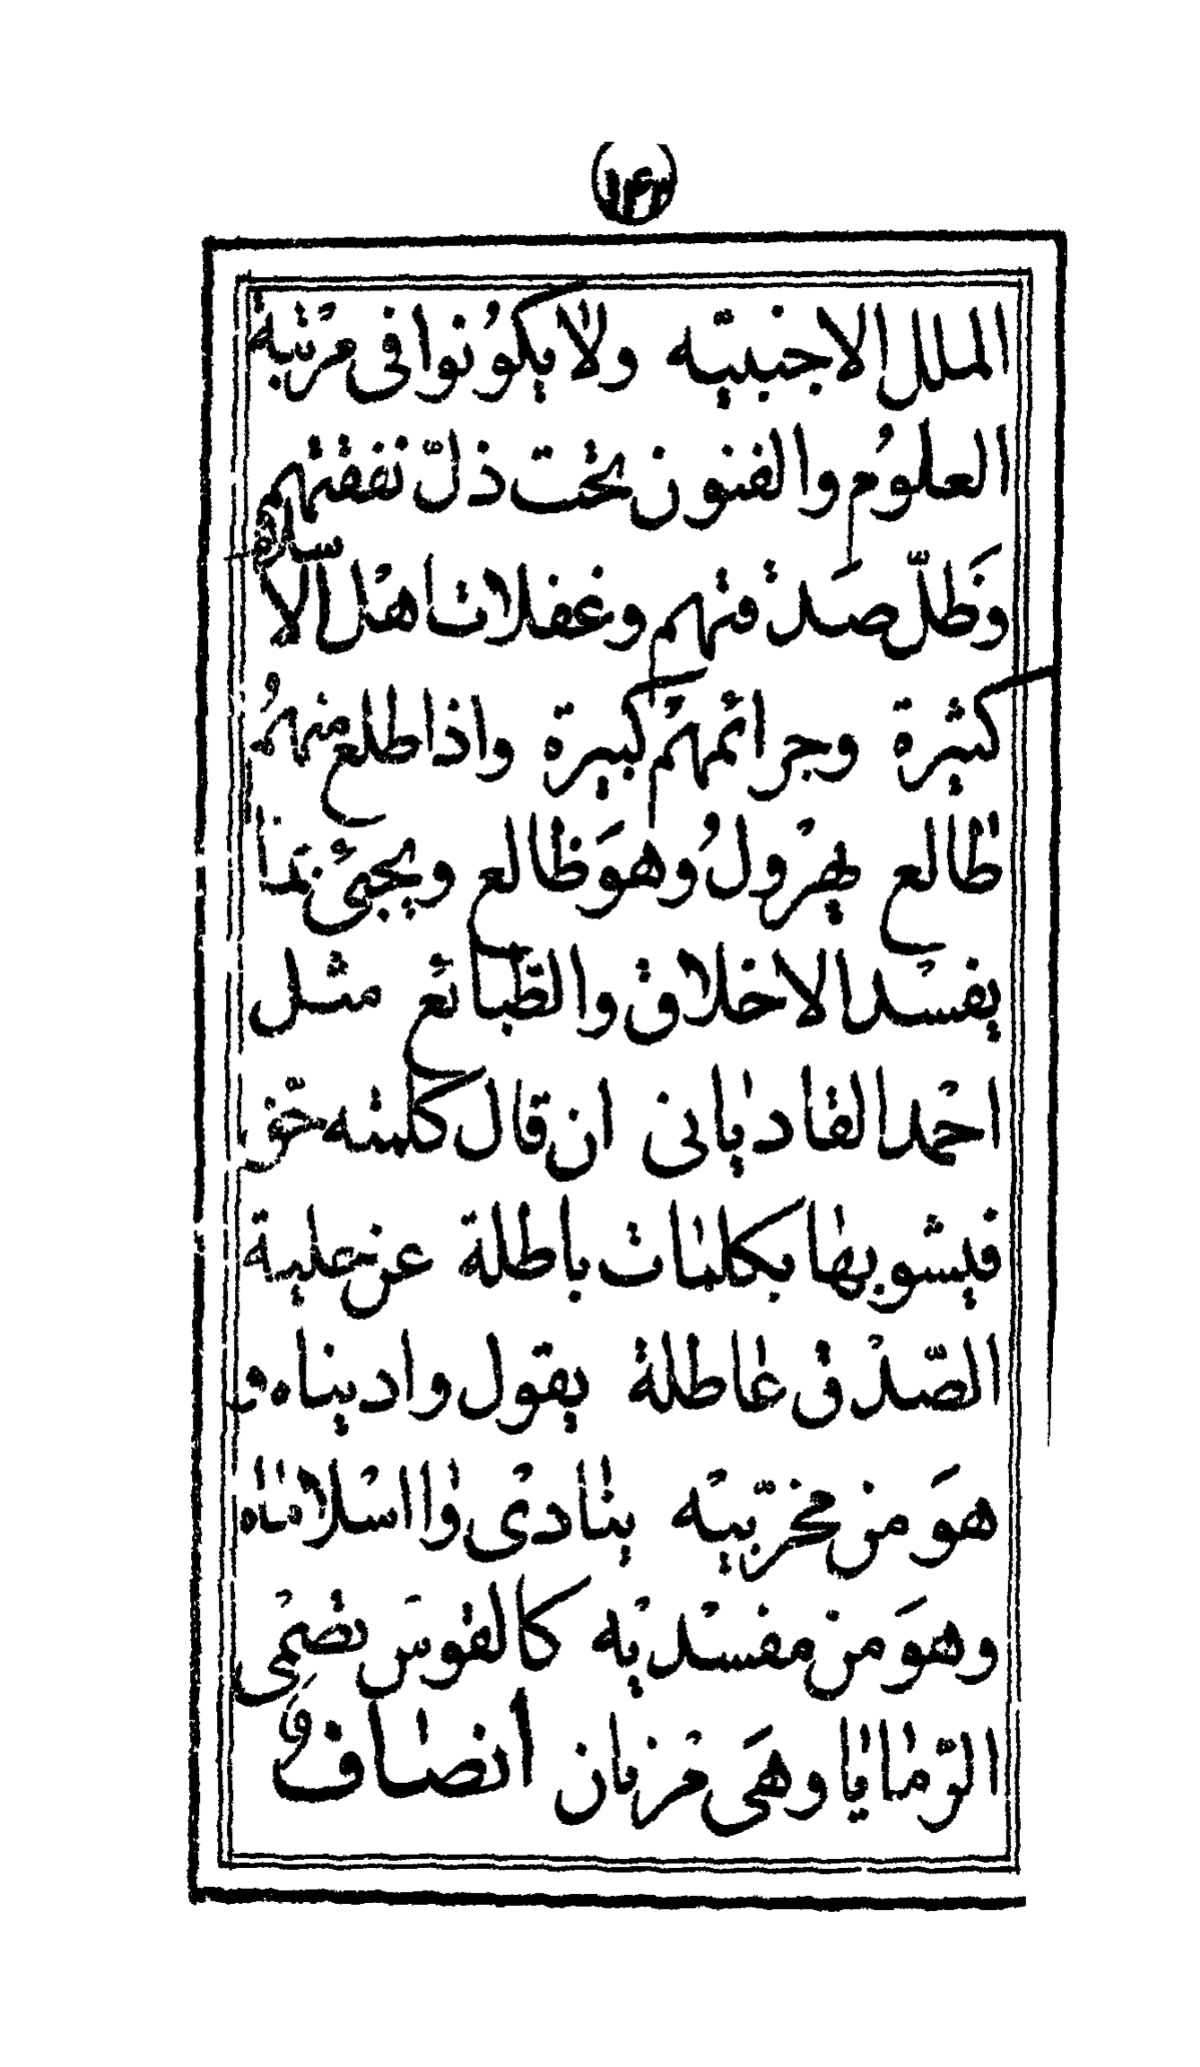 الملل الاجنبيّه ولا يكوُنوا فى مرْتبة
العلوُم والفنون تحت ذلّ نفقتهم
وَظلّ صَدقتهم وغفلات اهْل الاسلام
كثيرة وجرائمهمْ كبيرة واذا طلع منهمُ
طالع يهرْولُ وهوَ ظالع ويجيئ بما
يفسْد الاخلاق والطّبائع مثل
احمْد القاديانى ان قال كلمته حقّ
فيشوبها بكلمات باطلة عن حلية
الصّدْق عاطلة يقول وادیناه و
هوَ من مخرّبيْه ينادىْ وا اسْلاماه
وهوَ من مفسْديْه كالقوسَ تصْمِى
الرّمايا وهَى مرْنان أنصاف